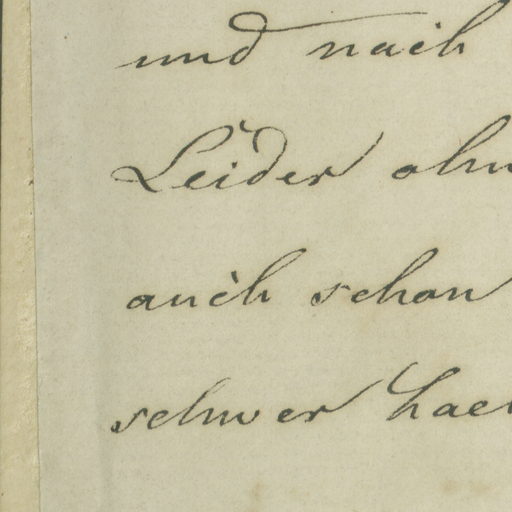 und nach
Leider ohn
auch schon
schwer hae